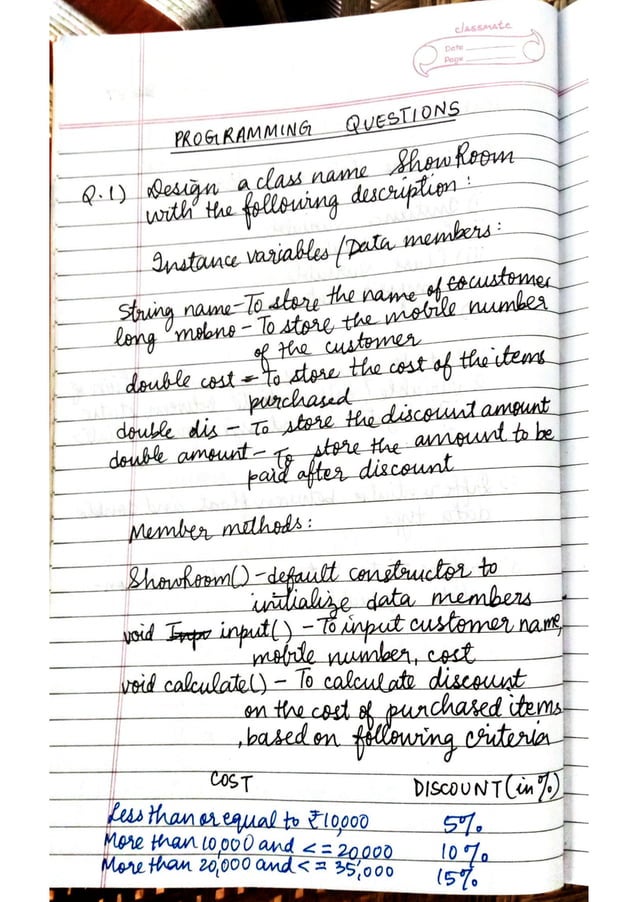 classmate
Date
Page
PROGRAMMING QUESTIONS
Q.1) Design a class name ShowRoom
with the following description:
Instance variables / Data members:
String name - To store the name of customer
long mobno - To store the mobile number
of the customer
double cost = To store the cost of the items
purchased
double dis - To store the discount amount
double amount - To store the amount to be
paid after discount
Member methods:
ShowRoom() - default constructor to
initialize data members
void input() - To input customer name,
mobile number, cost
void calculate() - To calculate discount
on the cost of purchased items
, based on following criteria
COST DISCOUNT (in %)
Less than or equal to ₹10,000 5%
More than 10,000 and <= 20,000 10%
More than 20,000 and <= 35,000 15%